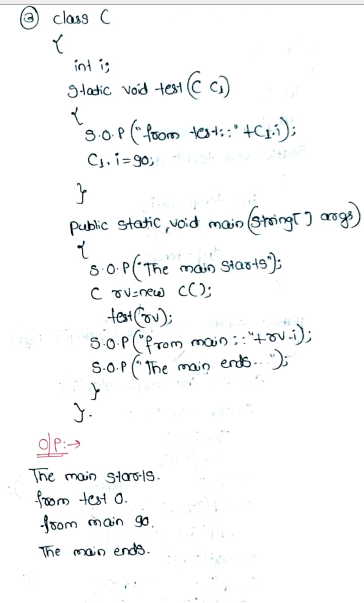 ③ class C
{
int i;
static void test(C C1)
{
S.O.P("from test::"+C1.i);
C1.i=90;
}
public static void main(String[] args)
{
S.O.P("The main starts");
C rv=new C();
test(rv);
S.O.P("from main::"+rv.i);
S.O.P("The main ends..");
}
}.
O/P:→
The main starts.
from test 0.
from main 90.
The main ends.